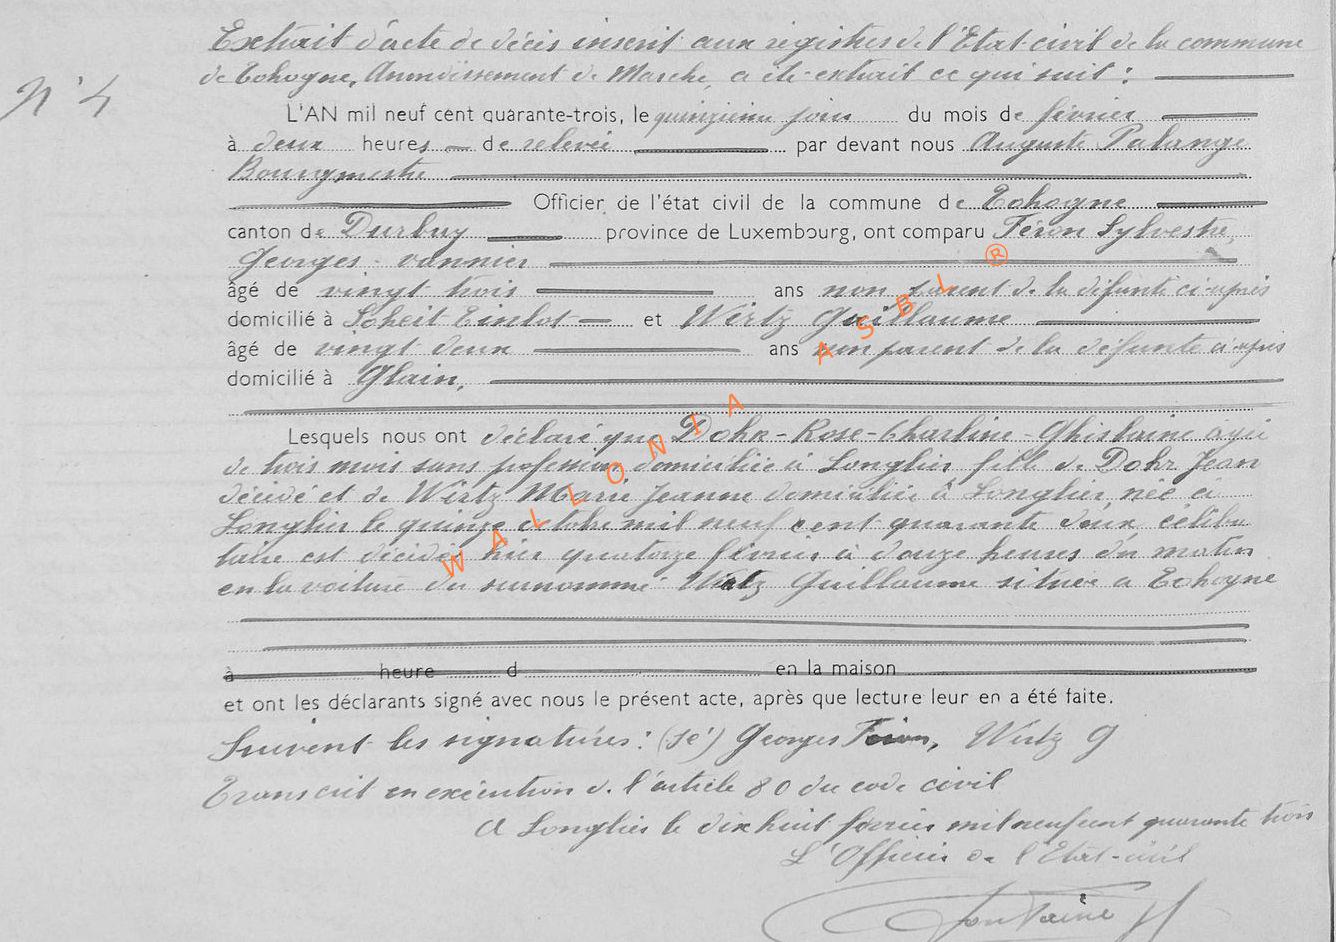 Extrait d'acte de décès inscrit aux registres de l'Etat-civil de la commune
de Tohogne, Arrondissement de Marche, a été extrait ce qui suit :
N° 4
L'AN mil neuf cent quarante-trois, le quinzième jour du mois de février
à deux heures de relevée par devant nous Auguste Palange
Bourgmestre
Officier de l'état civil de la commune de Tohogne
canton de Durbuy province de Luxembourg, ont comparu Féron Sylvestre,
Georges vannier
âgé de vingt trois ans non parent de la défunte ci-après
domicilié à Soheit Tinlot et Wirtz Guillaume
âgé de vingt deux ans non parent de la défunte ci-après
domicilié à Glain,
Lesquels nous ont déclaré que Dohr - Rose - Charline - Ghislaine agée
de trois mois sans profession domiciliée à Longlier fille de Dohr Jean
décédé et de Wirtz Marie Jeanne domiciliée à Longlier née à
Longlier le quinze octobre mil neuf cent quarante deux céliba
taire est décédée hier quatorze février à douze heures du matin
en la voiture du surnommé Wirtz Guillaume située à Tohogne
à heure d en la maison
et ont les déclarants signé avec nous le présent acte, après que lecture leur en a été faite.
Suivent les signatures : (sé) Georges Féron, Wirtz G
Transcrit en exécution de l'article 80 du code civil
A Longlier le dix huit février mil neuf cent quarante trois
L'Officier de l'Etat-civil
Fontaine
WALLONIA ASBL ®